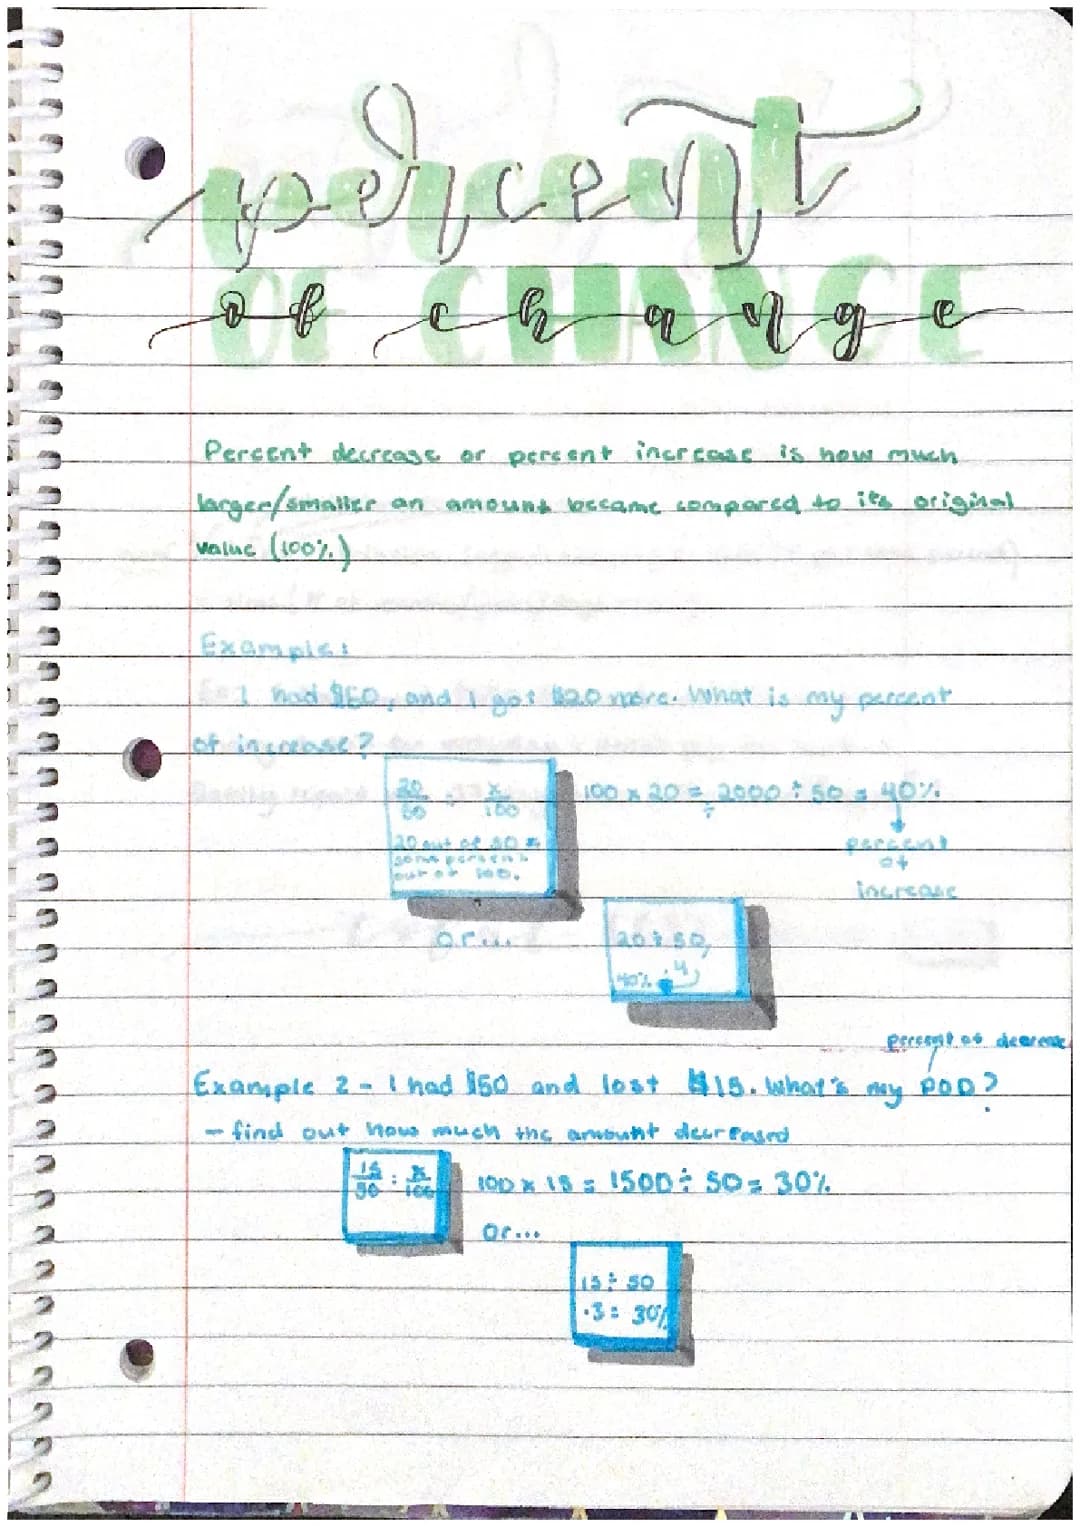 percent
of change
Percent decrease or percent increase is how much
larger/smaller an amount became compared to its original
value (100%)
Example:
I had $50, and I got $20 more. What is my percent
of increase?
20/50 : x/100
20 out of 50 =
some percent
out of 100.
100 x 20 = 2000 ÷ 50 = 40%
percent
of
increase
or...
20 ÷ 50,
40% .4
percent of decrease
Example 2 - I had $50 and lost $15. What's my POD?
- find out how much the amount decreased
15/50 : x/100
100 x 15 = 1500 ÷ 50 = 30%
or...
15 ÷ 50
.3 = 30%